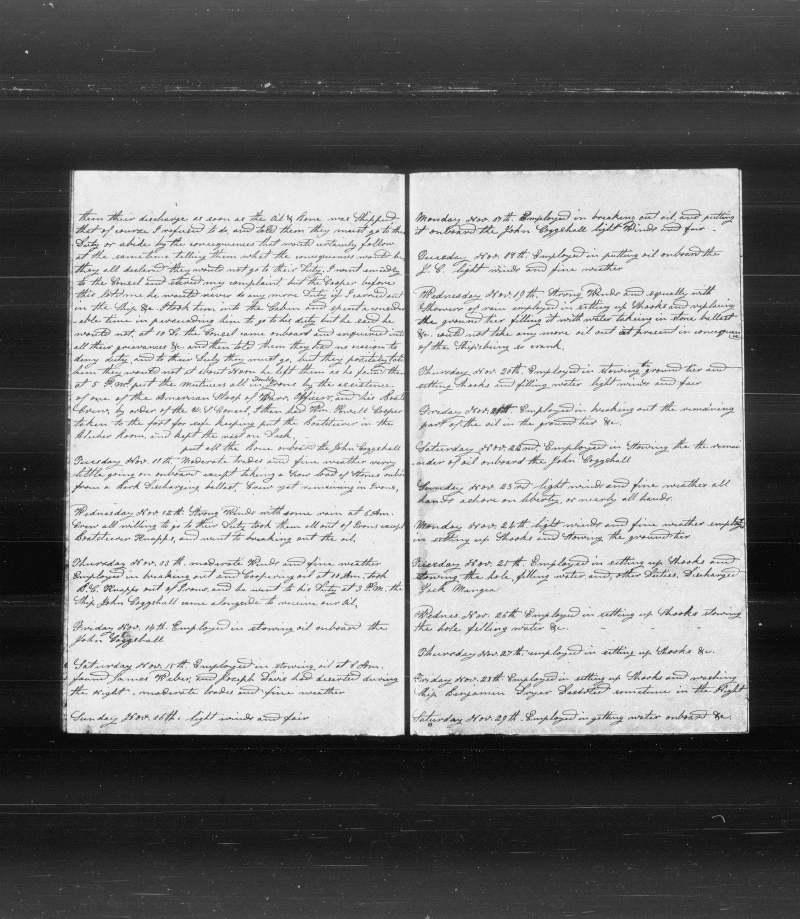 them their discharge as soon as the Oil & Bone was Shipped
that of course I refused to do, and told them they must go to their
Duty or abide by the consequences that would certainly follow
at the same time telling them what the consequences would be
they all declared they would not go to their Duty, I went
to the Consel and stated my complaint, but the Cooper before
this told me he would never do any more Duty if I carried out
in the Ship &c I took him into the Cabin and spent a consider
able time in persuading him to go to his duty but he said he
would not, at 10 the Consel came onboard and enquired into
all their grievances &c and then told them they had no reason to
deny duty, and to their Duty they must go, but they positively told
him they would not at about Noon he left them as he found them
at 5 P.M. put the mutineers all in Irons by the assistence
of one of the American Sloop of Warr, Officers, and his Boats
Crew, by order of the U.S Consel, I then had Wm. Powell Cooper
taken to the fort for safe keeping put the Boatsteerer in the
Blubber Room, and kept the rest on Deck,
put all the Bone onboard the John Coggshall
Tuesday Nov. 11th Moderate trades and fine weather very
little going on onboard except taking a Scow load of Stones onboard
from a Bark Discharging ballast, Crew yet remaining in Irons,
Wednesday Nov. 12th Strong Winds with some rain at 6 Am.
Crew all willing to go to their Duty took them all out of Irons except
Boatsteerer Knapps, and went to breaking out the oil,
Thursday Nov. 13th, moderate Winds and fine weather
Employed in breaking out and Coopering oil at 10 Am. took
Knapps out of Irons, and he went to his Duty at 3 P.M. the
Ship John Coggshall came alongside to receive our Oil,
Friday Nov. 14th Employed in stowing oil onboard the
John Coggshall
Saturday Nov. 15th Employed in stowing oil at 6 Am.
found James Weber, and Joseph Davis had deserted during
the Night. moderate trades and fine weather
Sunday Nov. 16th. light winds and fair
Monday Nov. 17th Employed in breaking out oil, and putting
it onboard the John Coggshall light Winds and fair
Tuesday Nov. 18th. Employed in putting oil onboard the
J. C. light winds and fine weather
Wednesday Nov. 19th. Strong Winds and squally with
Showers of rain employed in setting up Shooks and replacing
the ground tier filling it with water taking in stone ballast
&c. could not take any more oil out at present in consequence
of the Ship being so crank.
Thursday Nov. 20th. Employed in stowing the ground tier and
setting Shooks and filling water light winds and fair
Friday Nov. 21st Employed in breaking out the remaining
part of the oil in the ground tier &c.
Saturday Nov. 22nd. Employed in Stowing the the remai
inder of oil onboard the John Coggshall
Sunday Nov. 23rd light winds and fine weather all
hands ashore on liberty, or nearly all hands.
Monday Nov. 24th. light winds and fine weather employed
in setting up Shooks and Stowing the ground tier
Tuesday Nov. 25th. Employed in setting up Shooks and
stowing the hole, filling water and, other Duties. Discharged
Jack Mangea
Wednes. Nov. 26th Employed in setting up Shooks stowing
the hole filling water &c.
Thursday Nov. 27th. employed in setting up Shooks &c.
Friday Nov. 28th Employed in setting up Shooks and washing
ship Benjamin Dryer Deserted sometime in the Night
Saturday Nov. 29th. Employed in getting water onboard &c.